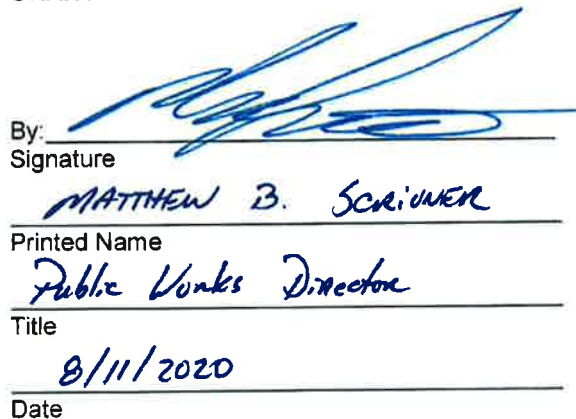 By:
Signature
MATTHEW B. SCRIVNER
Printed Name
Public Works Director
Title
8/11/2020
Date